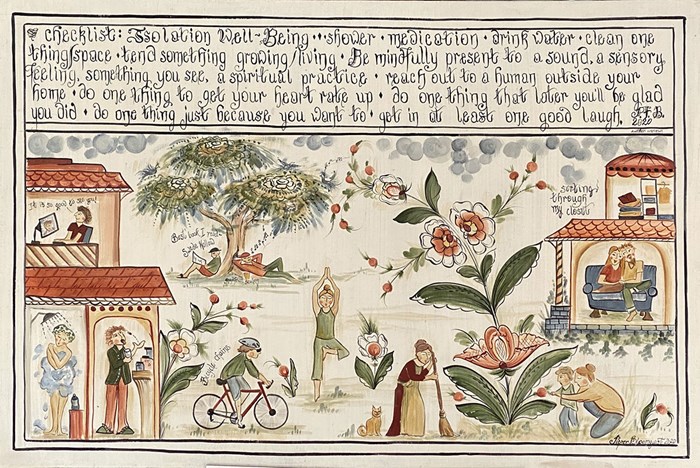 checklist: Isolation Well-Being • shower • medication • drink water • clean one
thing/space • tend something growing/living • Be mindfully present to a sound, a sensory
feeling, something you see, a spiritual practice • reach out to a human outside your
home • do one thing to get your heart rate up • do one thing that later you'll be glad
you did • do one thing just because you want to • get in at least one good laugh.
2020
It is so good to see you!
Best book I
sorting
through
my closet
Bicycle